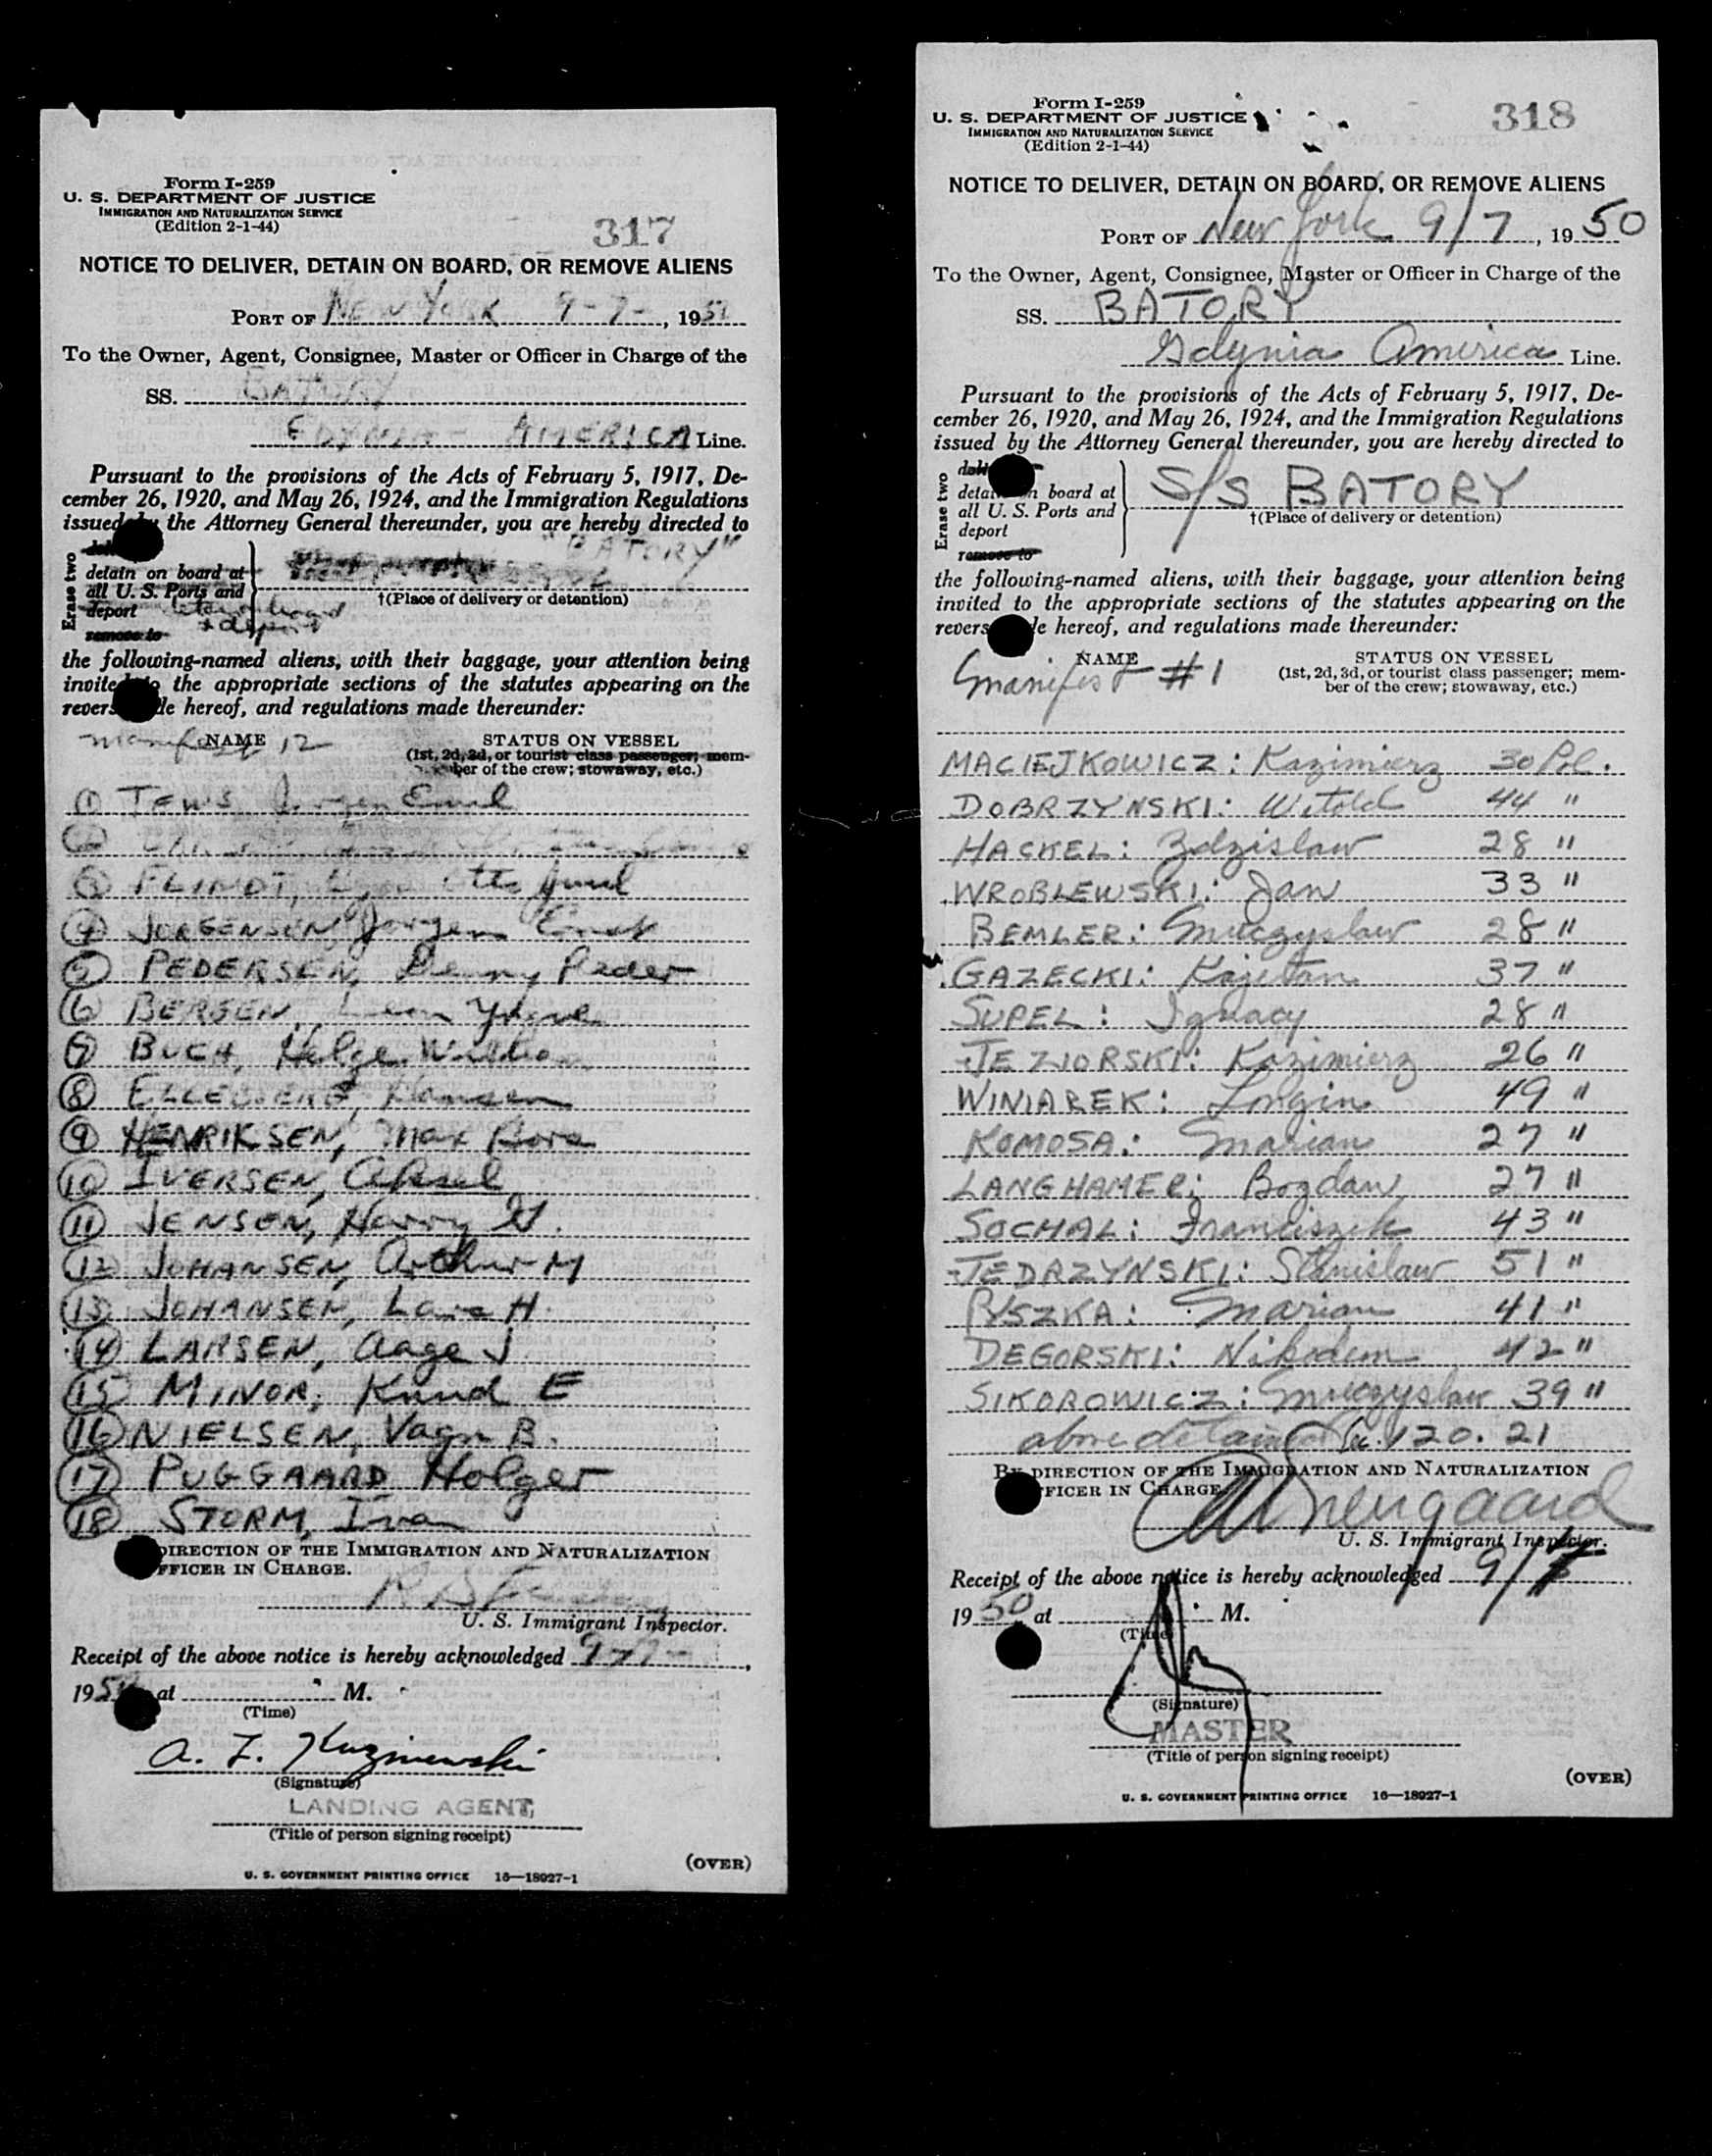 Form I-259
U. S. DEPARTMENT OF JUSTICE
IMMIGRATION AND NATURALIZATION SERVICE
(Edition 2-1-44)
317
NOTICE TO DELIVER, DETAIN ON BOARD, OR REMOVE ALIENS
PORT OF NEW YORK 9-7-, 1950
To the Owner, Agent, Consignee, Master or Officer in Charge of the
SS. BATORY
GDYNIA - AMERICA Line.
Pursuant to the provisions of the Acts of February 5, 1917, De-
cember 26, 1920, and May 26, 1924, and the Immigration Regulations
issued by the Attorney General thereunder, you are hereby directed to
"BATORY"
Erase two
detain on board at
all U. S. Ports and
deport detain on board
& deport
remove to
†(Place of delivery or detention)
the following-named aliens, with their baggage, your attention being
invited to the appropriate sections of the statutes appearing on the
reverse side hereof, and regulations made thereunder:
manifest 12
NAME STATUS ON VESSEL
(1st, 2d, 3d, or tourist class passenger; mem-
ber of the crew; stowaway, etc.)
① TEWS, Jorgen Emil
②
③ FLINDT, Otto Juul
④ JORGENSEN, Jorgen Ernst
⑤ PEDERSEN, Henny Peder
⑥ BERGEN,
⑦ BUCH, Helge William
⑧ ELLEBJERG, Hansen
⑨ HENRIKSEN, Max
⑩ IVERSEN, Aksel
⑪ JENSEN, Harry
⑫ JOHANSEN, Arthur M
⑬ JOHANSEN, H.
⑭ LARSEN, Aage J
⑮ MINOR, Knud E
⑯ NIELSEN, Vagn B.
⑰ PUGGAARD Holger
⑱ STORM, Ivan
DIRECTION OF THE IMMIGRATION AND NATURALIZATION
OFFICER IN CHARGE.
U. S. Immigrant Inspector.
Receipt of the above notice is hereby acknowledged 9-7-,
1950 at M.
(Time)
A. Z. Kuzniewski
(Signature)
LANDING AGENT,
(Title of person signing receipt)
(OVER)
U. S. GOVERNMENT PRINTING OFFICE 16—18027-1
Form I-259
U. S. DEPARTMENT OF JUSTICE
IMMIGRATION AND NATURALIZATION SERVICE
(Edition 2-1-44)
318
NOTICE TO DELIVER, DETAIN ON BOARD, OR REMOVE ALIENS
PORT OF New York 9/7, 1950
To the Owner, Agent, Consignee, Master or Officer in Charge of the
SS. BATORY
Gdynia America Line.
Pursuant to the provisions of the Acts of February 5, 1917, De-
cember 26, 1920, and May 26, 1924, and the Immigration Regulations
issued by the Attorney General thereunder, you are hereby directed to
Erase two
detain on board at
all U. S. Ports and
deport
remove to
S/S BATORY
†(Place of delivery or detention)
the following-named aliens, with their baggage, your attention being
invited to the appropriate sections of the statutes appearing on the
reverse side hereof, and regulations made thereunder:
NAME STATUS ON VESSEL
Manifest #1
(1st, 2d, 3d, or tourist class passenger; mem-
ber of the crew; stowaway, etc.)
MACIEJKOWICZ: Kazimierz 30 Pol.
DOBRZYNSKI: Witold 44 "
HACKEL: Zdzislaw 28 "
WROBLEWSKI: Jan 33 "
BEMLER: Mieczyslaw 28 "
GAZECKI: Kajetan 37 "
SUPEL: Ignacy 28 "
JEZIORSKI: Kazimierz 26 "
WINIAREK: Longin 49 "
KOMOSA: Marian 27 "
LANGHAMER: Bogdan 27 "
SOCHAL: Franciszek 43 "
JEDRZYNSKI: Stanislaw 51 "
PYSZKA: Marian 41 "
DEGORSKI: Nikodem 42 "
SIKOROWICZ: Mieczyslaw 39 "
above detain Sec. 120.21
BY DIRECTION OF THE IMMIGRATION AND NATURALIZATION
OFFICER IN CHARGE.
U. S. Immigrant Inspector.
Receipt of the above notice is hereby acknowledged 9/7
1950 at M.
(Time)
(Signature)
MASTER
(Title of person signing receipt)
(OVER)
U. S. GOVERNMENT PRINTING OFFICE 16—18027-1